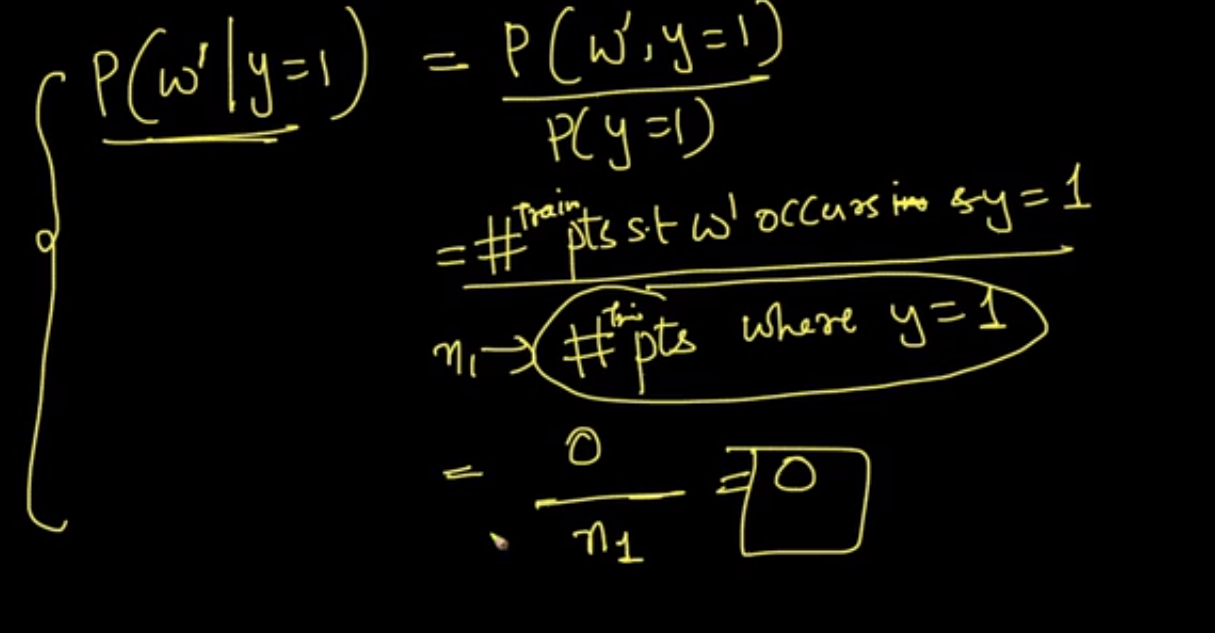 P(w'|y=1) = P(w', y=1)
P(y=1)
= # Train pts s.t w' occurs & y=1
n₁ → # pts where y=1
= 0
n₁
= 0